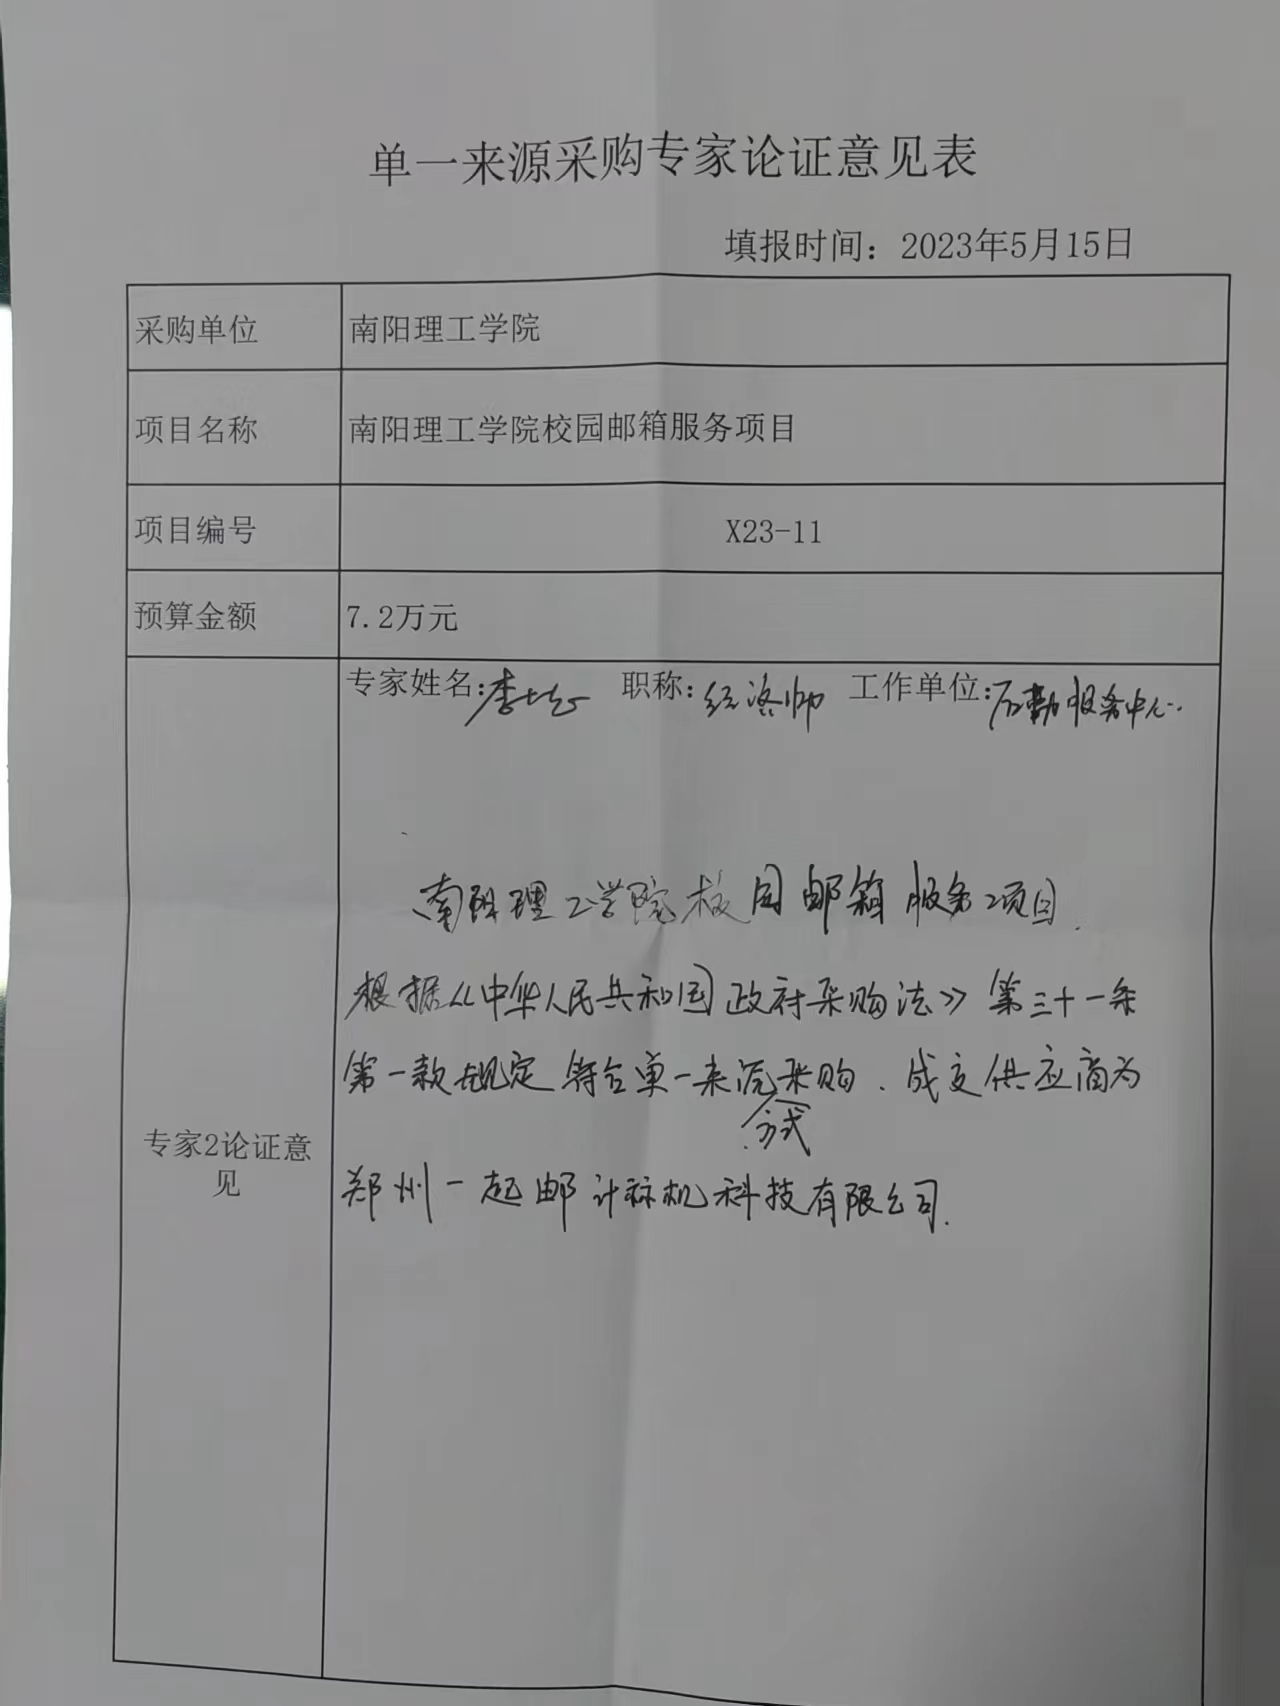 单一来源采购专家论证意见表
填报时间：2023年5月15日
采购单位 南阳理工学院
项目名称 南阳理工学院校园邮箱服务项目
项目编号 X23-11
预算金额 7.2万元
专家姓名：李 职称：经济师 工作单位：后勤服务中心
南阳理工学院校园邮箱服务项目.
根据《中华人民共和国政府采购法》第三十一条
第一款规定符合单一来源采购方式、成交供应商为
专家2论证意见
郑州一起邮计算机科技有限公司.